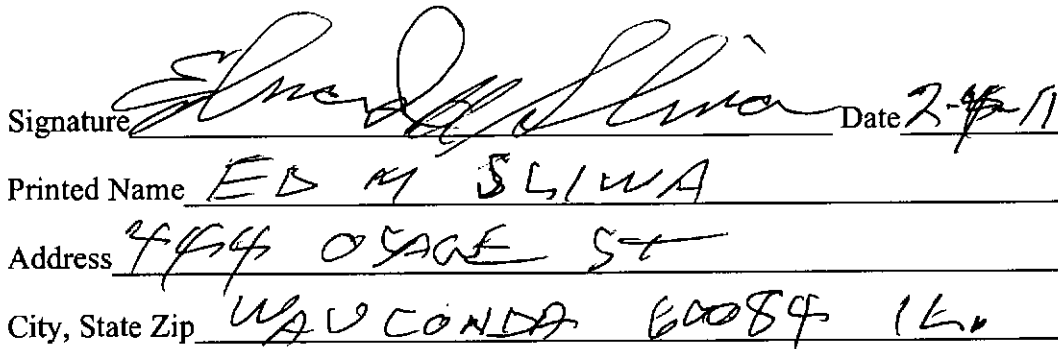 Signature Edward M Sliwa Date 2-4-11
Printed Name ED M SLIWA
Address 444 OSAGE St
City, State Zip WAUCONDA 60084 IL.